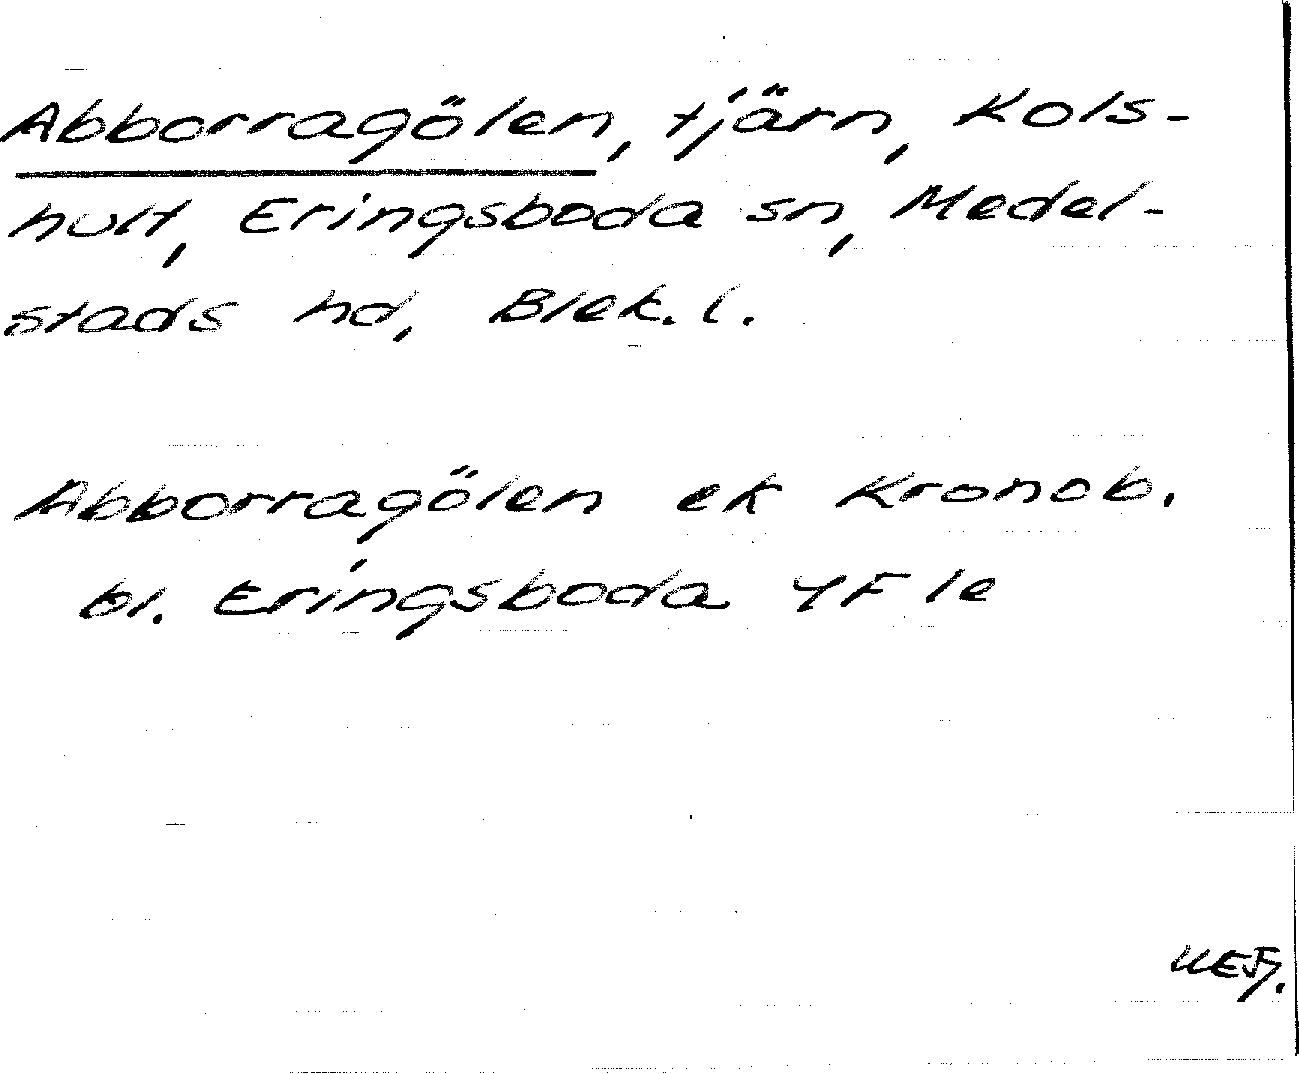 Abborragölen, tjärn, Kols-
hult, Eringsboda sn, Medel-
stads hd, Blek. l.
Abborragölen ek Kronob.
bl. Eringsboda 4F 1e